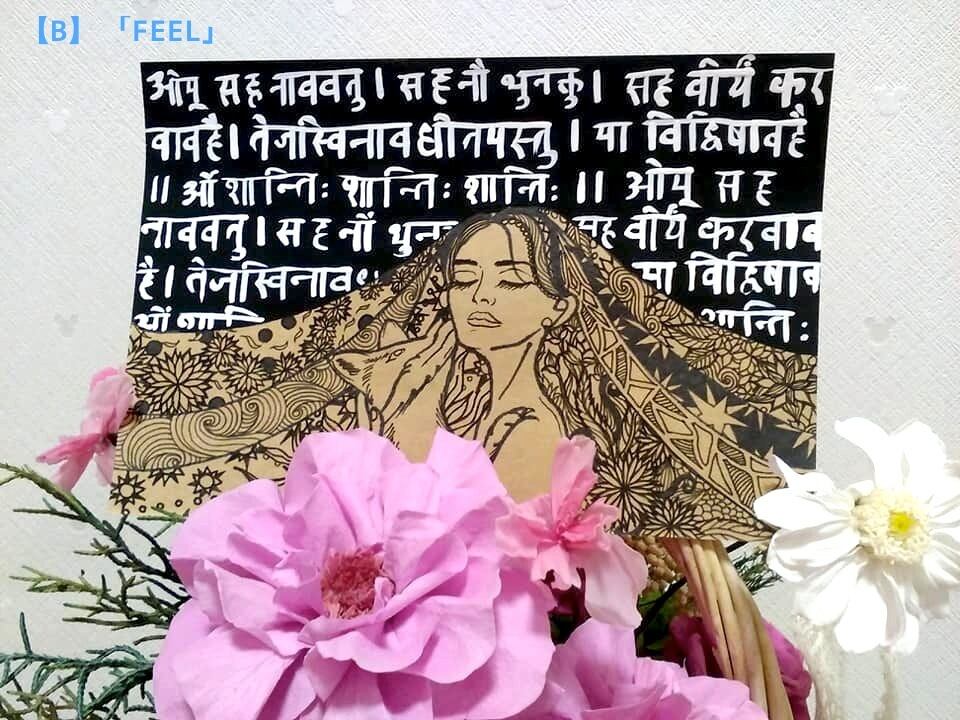 【B】 「FEEL」
ओम् सह नाववतु । सह नौ भुनक्तु । सह वीर्यं कर
वावहै । तेजस्विनावधीतमस्तु । मा विद्विषावहै
॥ ओं शान्तिः शान्तिः शान्तिः ॥ ओम् सह
नाववतु । सह नौं सह वीर्यं करवाव
है । तेजस्विनाव मा विद्विषाव
ओं शान्तिः